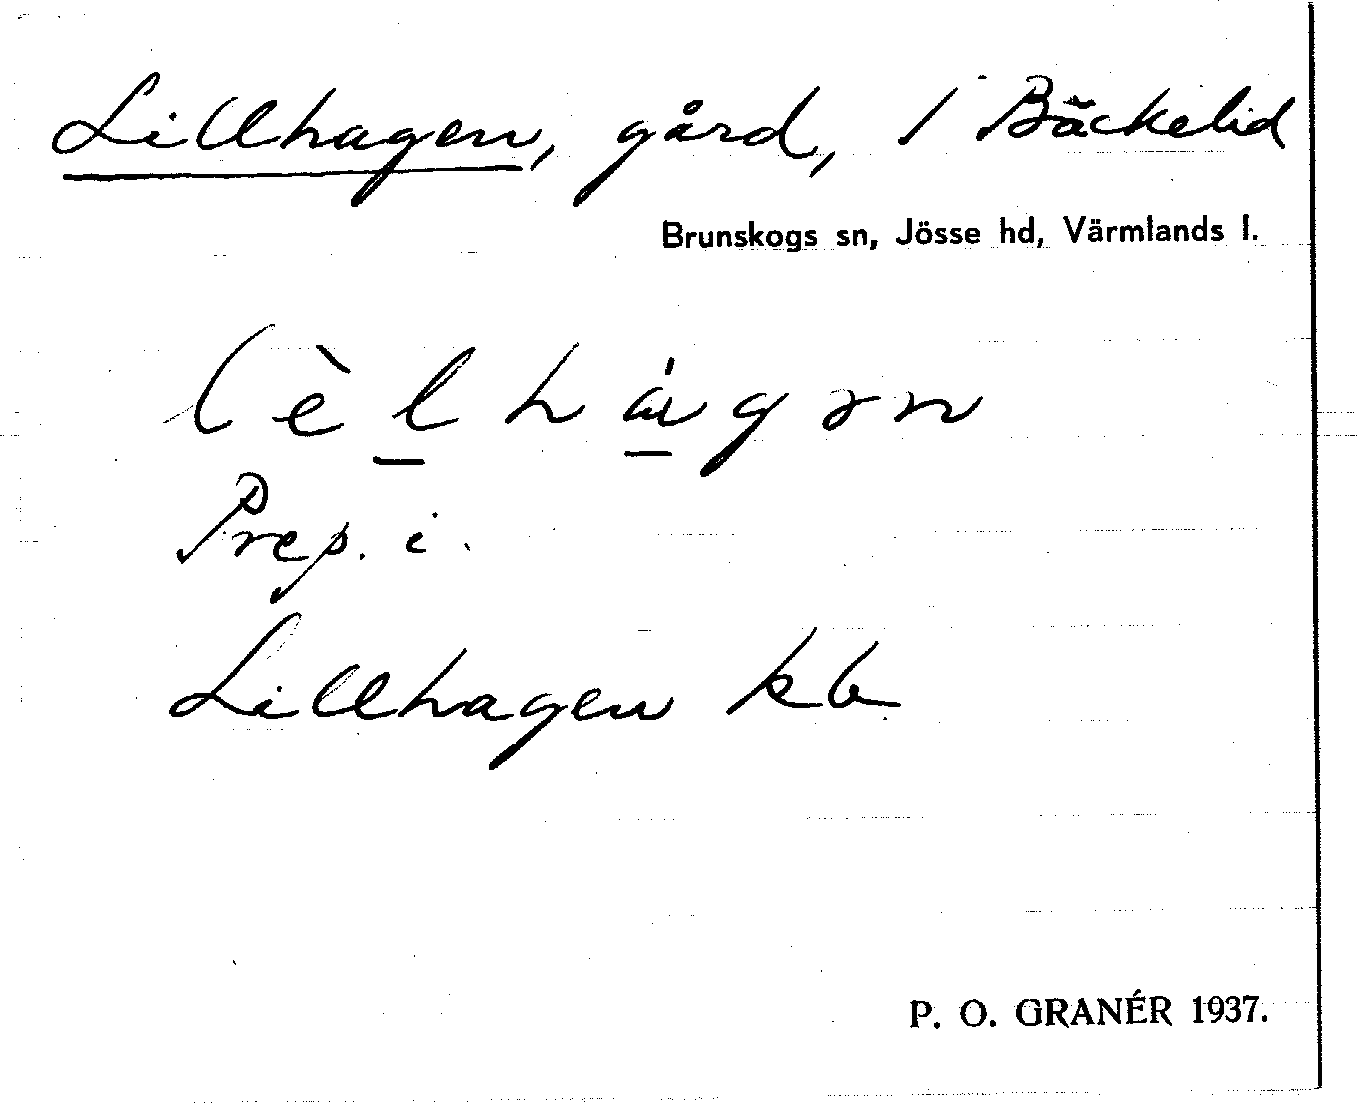 Lillhagen, gård, 1 Bäckelid
Brunskogs sn, Jösse hd, Värmlands l.
lèl̲há̲gən
Prep. i.
Lillhagen kb
P. O. GRANÉR 1937.